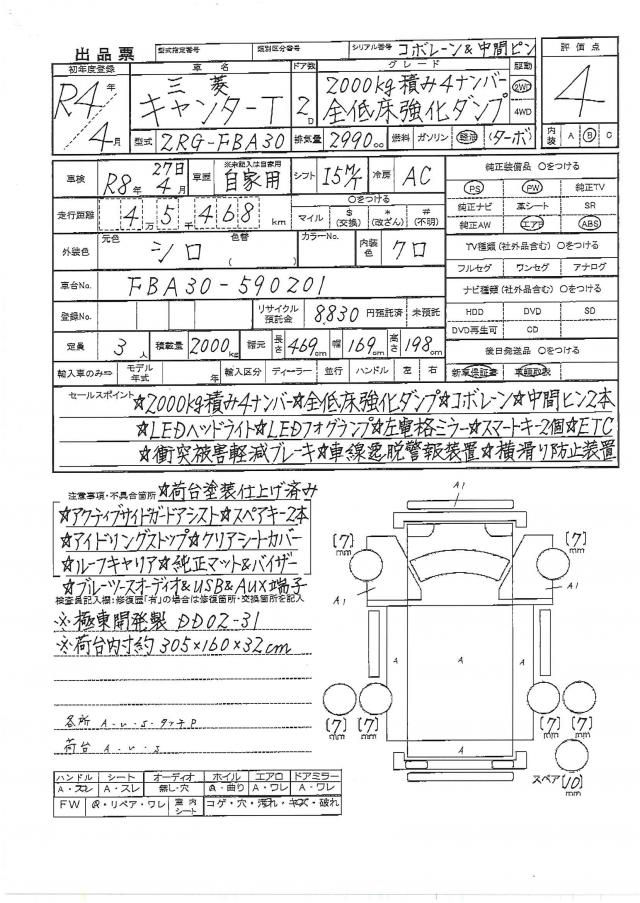 出品票 型式指定番号 類別区分番号 シリアル番号 コボレーン&中間ピン
初年度登録 車名 ドア数 グレード 駆動 評価点
R4年 三菱 2000kg積み4ナンバー 2WD 4
4月 キャンターT 2D 全低床強化ダンプ 4WD
型式 2RG-FBA30 排気量 2990cc 燃料 ガソリン 軽油 (ターボ) 内装 A B C
車検 R8年 27日 4月 車歴 ※未記入は自家用 自家用 シフト I5M/T 冷房 AC 純正装備品 ○をつける
PS PW 純正TV
走行距離 4万5千468km ○をつける マイル $(交換) *(改ざん) #(不明) 純正ナビ 革シート SR
純正AW エアB ABS
外装色 元色 シロ 色替 カラーNo. 内装色 クロ TV種類(社外品含む) ○をつける
フルセグ ワンセグ アナログ
車台No. FBA30-590201 ナビ種類(社外品含む) ○をつける
登録No. リサイクル預託金 8,830 円預託済 未預託 HDD DVD SD
DVD再生可 CD
定員 3人 積載量 2000kg 諸元 長さ 469cm 幅 169cm 高さ 198cm 後日発送品 ○をつける
輸入車のみ⇨ モデル年式 年 輸入区分 ディーラー 並行 ハンドル 左 右 新車保証書 車輌取説
セールスポイント ☆2000kg積み4ナンバー☆全低床強化ダンプ☆コボレーン☆中間ピン2本
☆LEDヘッドライト☆LEDフォグランプ☆左電格ミラー☆スマートキー2個☆ETC
☆衝突被害軽減ブレーキ☆車線逸脱警報装置☆横滑り防止装置
注意事項・不具合箇所 ☆荷台塗装仕上げ済み
☆アクティブサイドガードアシスト☆スペアキー2本
☆アイドリングストップ☆クリアシートカバー
☆ルーフキャリア☆純正マット&バイザー
☆ブルーツースオーディオ&USB&AUX端子
検査員記入欄:修復歴「有」の場合は修復箇所・交換箇所を記入
※極東開発製 DD02-31
※荷台内寸約 305×160×32cm
各所 A-U-S-タッチP
荷台 A-U-S
A1
[7]mm [7]mm
A1 A1
A A A
[7]mm [7]mm [7]mm [7]mm
A
スペア [10]mm
ハンドル シート オーディオ ホイル エアロ ドアミラー
A・スレ A・スレ 無し・穴 G・曲り A・ワレ A・ワレ
FW G・リペア・ワレ 室内シート コゲ・穴・汚れ・キズ・破れ